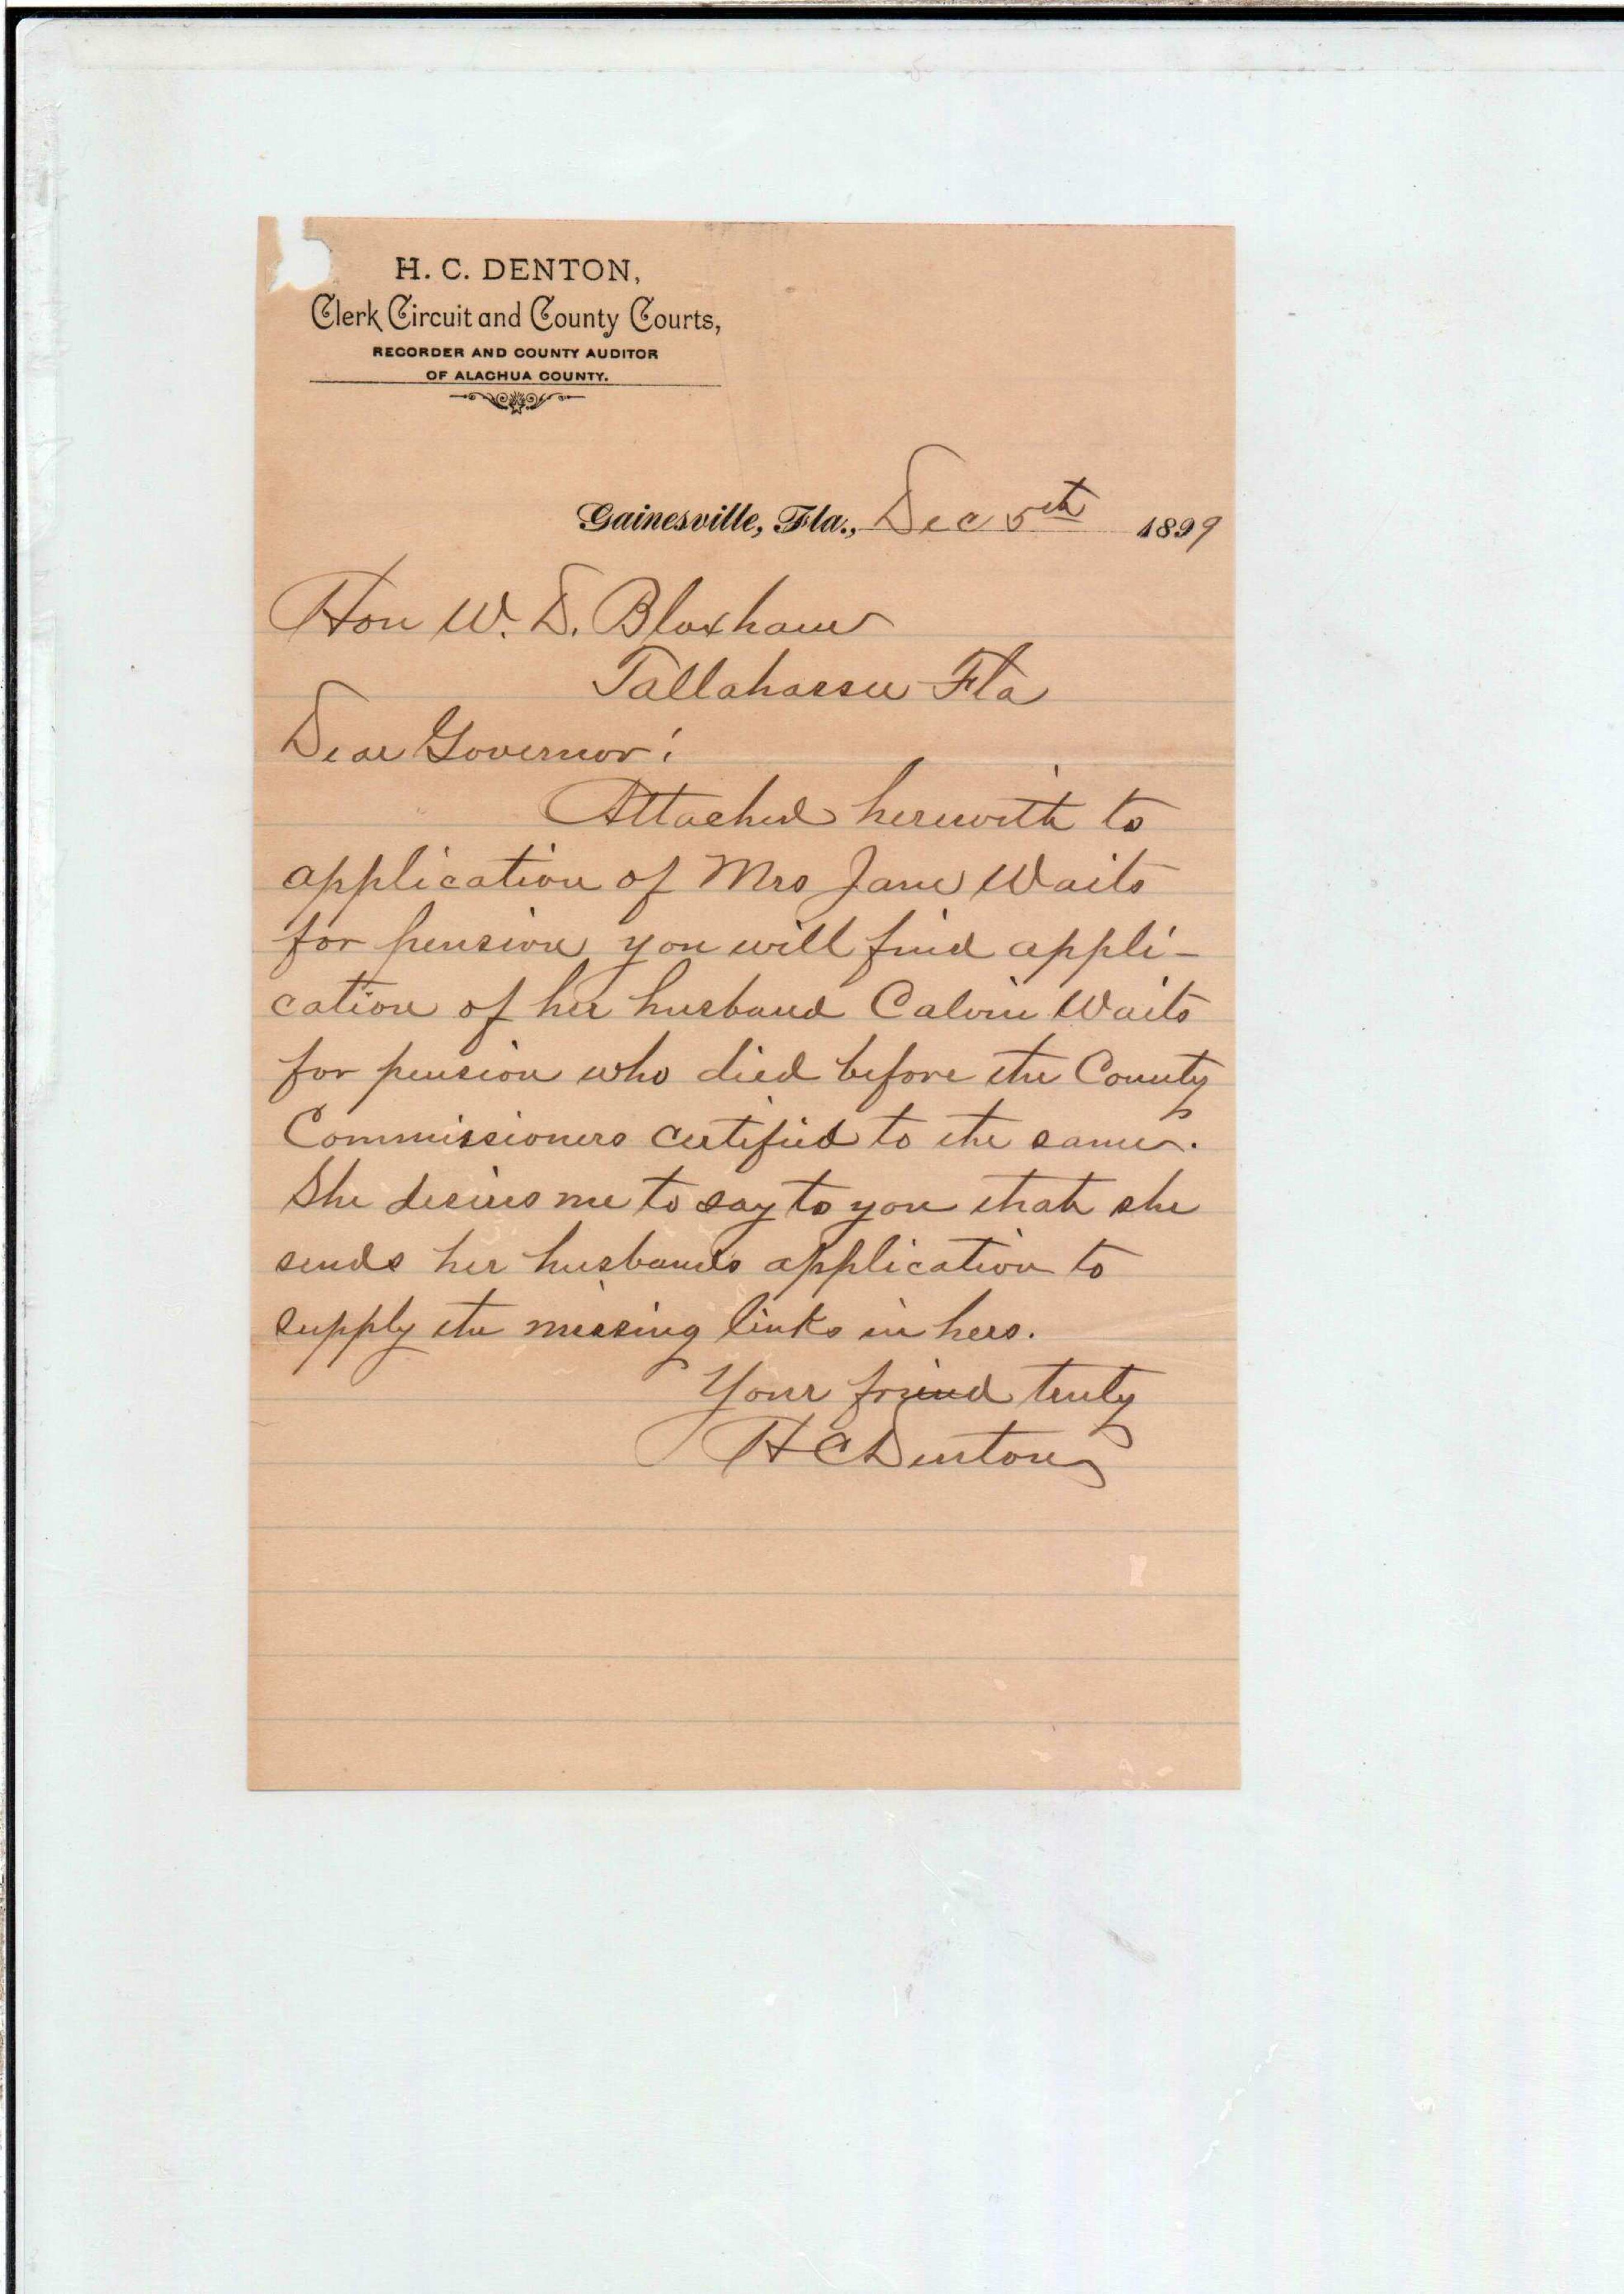 H. C. DENTON,
Clerk Circuit and County Courts,
RECORDER AND COUNTY AUDITOR
OF ALACHUA COUNTY.
Gainesville, Fla., Dec 5th 1899
Hon W. D. Bloxham
Tallahassee Fla
Dear Governor:
Attached herewith to
application of Mrs Jane Waits
for pension you will find appli-
cation of her husband Calvin Waits
for pension who died before the County
Commissioners certified to the same.
She desires me to say to you that she
sends her husbands application to
supply the missing links in hers.
Your friend truly
H C Denton